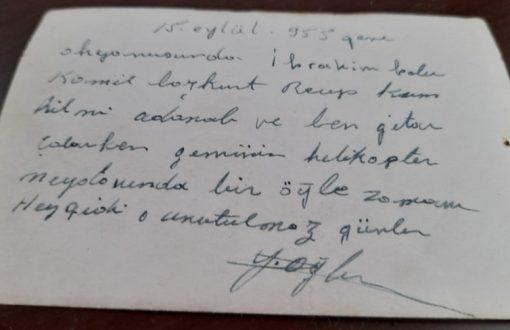 15. eylül. 955 gene
okyanusunda. İbrahim
Kamil bozkurt Recep
hilmi adanalı ve ben gitar
Çalarken geminin helikopter
meydanında bir öğle zamanı
Hey gidi o unutulmaz günler